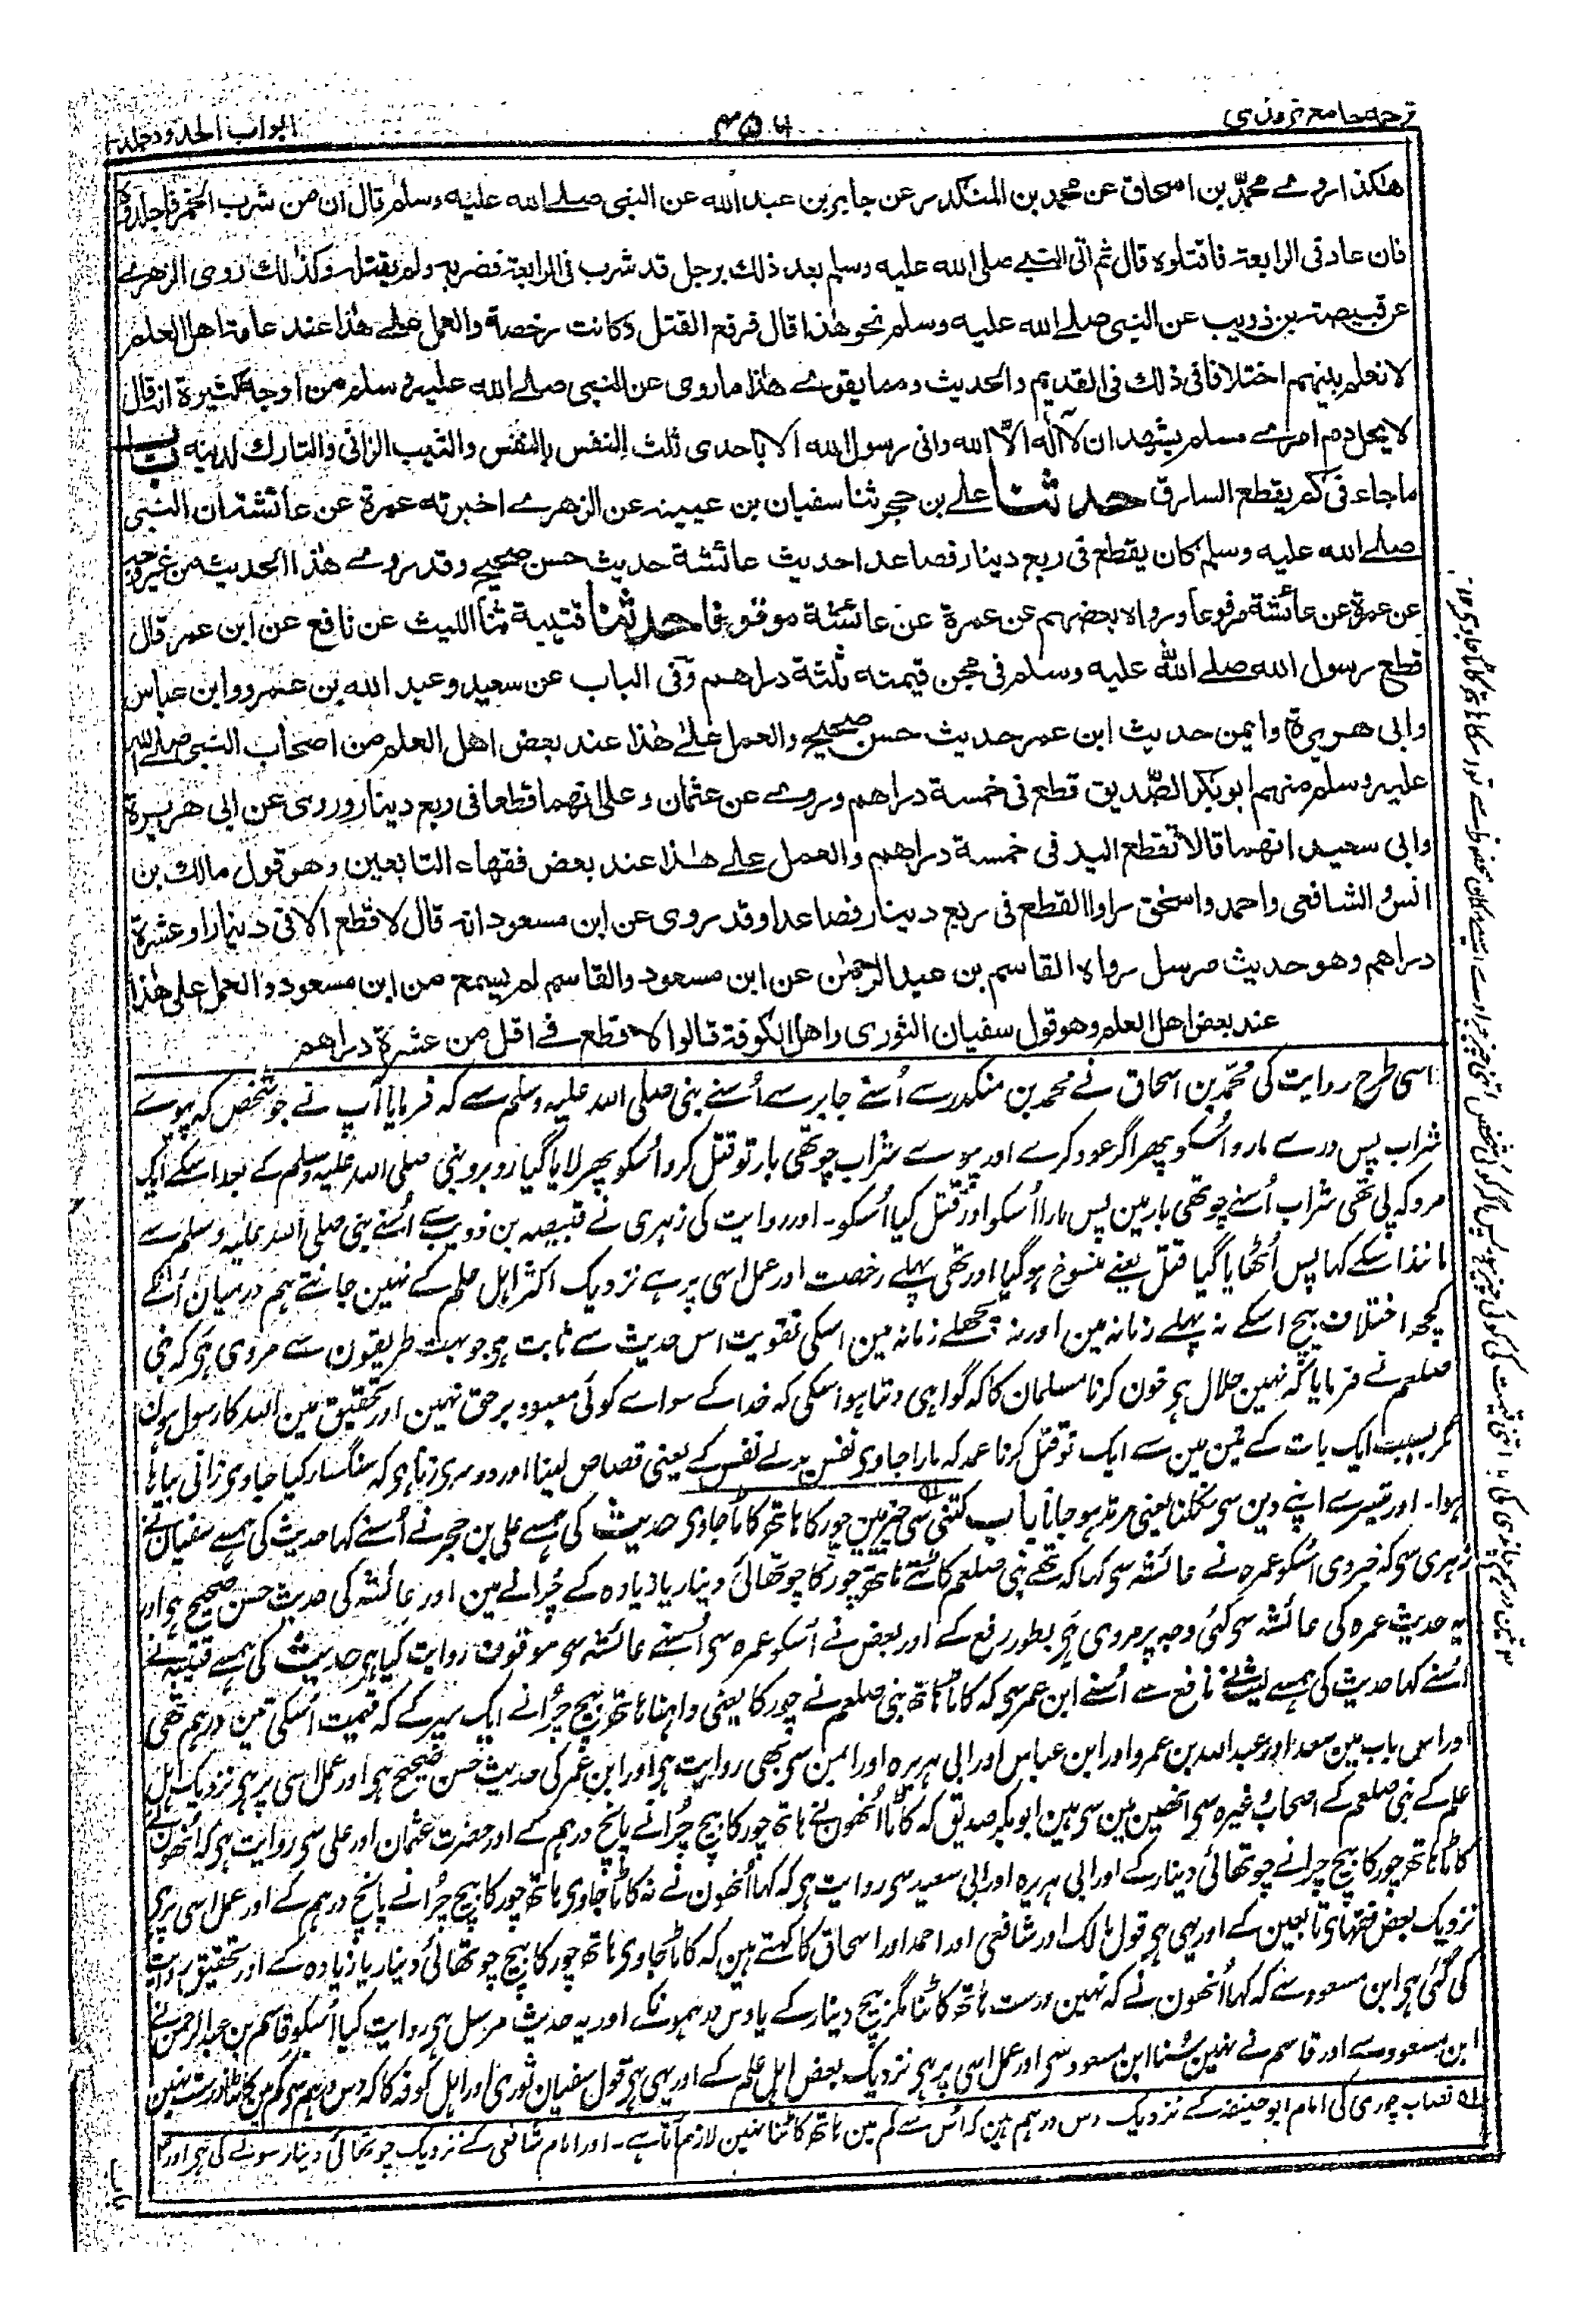 ترجمہ جامع ترمذی
۴۵۶
ابواب الحدود جلد ۱
هٰکذا روے محمّد بن اسحاق عن محمد بن المنکدر عن جابر بن عبد الله عن النبی صلے الله علیه وسلم قال ان من شرب الخمر فاجلدوه
فان عاد فی الرابعة فاقتلوه قال ثم اتی النبے صلی الله علیه وسلم بعد ذلك برجل قد شرب فی الرابعة فضربه ولم یقتله وکذلك روی الزهرے
عن قبیصة بن ذویب عن النبی صلے الله علیه وسلم نحو هٰذا قال فرفع القتل وکانت رخصة والعمل علے هٰذا عند عامة اهل العلم
لا نعلم بینهم اختلافا فی ذلك فی القدیم والحدیث ومما یقوے هٰذا ما روی عن النبی صلے الله علیه وسلم من اوجه کثیرة انه قال
لا یحل دم امرے مسلم یشهد ان لا آله الّا الله وانی رسول الله الا باحدی ثلث النفس بالنفس والثیب الزانی والتارك لدینه باب
ما جاء فی کم یقطع السارق حدثنا علے بن حجر ثنا سفیان بن عیینه عن الزهرے اخبرته عمرة عن عائشة ان النبی
صلے الله علیه وسلم کان یقطع فی ربع دینار فصاعدا حدیث عائشة حدیث حسن صحیح وقد روے هٰذا الحدیث من غیر وجه
عن عمرة عن عائشة مرفوعا ورواه بعضهم عن عمرة عن عائشة موقوفا حدثنا قتیبة ثنا اللیث عن نافع عن ابن عمر قال
قطع رسول الله صلے الله علیه وسلم فی مجن قیمته ثلثة دراهم وفی الباب عن سعید وعبد الله بن عمرو وابن عباس
وابی هریرة وایمن حدیث ابن عمر حدیث حسن صحیح والعمل علے هٰذا عند بعض اهل العلم من اصحاب النبی صلے الله
علیه وسلم منهم ابو بکر الصّدیق قطع فی خمسة دراهم وروے عن عثمان وعلی انهما قطعا فی ربع دینار وروی عن ابی هریرة
وابی سعید انهما قالا تقطع الید فی خمسة دراهم والعمل علے هٰذا عند بعض فقهاء التابعین وهو قول مالك بن
انس والشافعی واحمد واسحٰق راوا القطع فی ربع دینار فصاعدا وقد روی عن ابن مسعود انه قال لا قطع الا فی دینار او عشرة
دراهم وهو حدیث مرسل رواه القاسم بن عبد الرحمٰن عن ابن مسعود والقاسم لم یسمع من ابن مسعود والعمل علی هٰذا
عند بعض اهل العلم وهو قول سفیان الثوری واهل الکوفة قالوا لا قطع فے اقل من عشرة دراهم
اسی طرح روایت کی محمّد بن اسحاق نے محمد بن منکدر سے اُسنے جابر سے اُسنے نبی صلی اللہ علیہ وسلم سے کہ فرمایا آپ نے جو شخص کہ پیوے
شراب پس درے مارو اُسکو پھر اگر عود کرے اور پیوے شراب چوتھی بار تو قتل کرو اُسکو پھر لایا گیا روبرو نبی صلی اللہ علیہ وسلم کے بعد اسکے ایک
مرد کہ پی تھی شراب اُسنے چوتھی بار مین پس مارا اُسکو اور نہ قتل کیا اُسکو۔ اور روایت کی زہری نے قبیصہ بن ذویب سے اُسنے نبی صلی اللہ علیہ وسلم سے
مانند اسکے کہا پس اُٹھایا گیا قتل یعنے منسوخ ہوگیا اور تھی پہلے رخصت اور عمل اسی پر ہے نزدیک اکثر اہل علم کے نہین جانتے ہم درمیان اُنکے
کچھ اختلاف بیچ اسکے نہ پہلے زمانہ مین اور نہ پچھلے زمانہ مین اسکی تقویت اس حدیث سے ثابت ہی جو بہت طریقون سے مروی ہی کہ نبی
صلعم نے فرمایا کہ نہین حلال ہی خون کرنا مسلمان کا کہ گواہی دیتا ہو اسکی کہ خدا کے سواے کوئی معبود برحق نہین اور تحقیق مین اللہ کا رسول ہون
مگر بسبب ایک بات کے تین مین سے ایک تو قتل کرنا عمد کہ مارا جاوی نفس بدلے نفس کے یعنی قصاص لینا اور دوسری زنا ہی کہ سنگسار کیا جاوی زانی بیاہا
ہوا۔ اور تیسرے اپنے دین سی نکلنا یعنی مرتد ہو جانا باب کتنی سی چیز مین چور کا ہاتھ کاٹا جاوی حدیث کی ہمسے علی بن حجر نے اُسنے کہا حدیث کی ہمسے سفیان نے
زہری سی کہ خبر دی اُسکو عمرہ نے عائشہ سی کہا کہ تھے نبی صلعم کاٹتے ہاتھ چور کا چوتھائی دینار یا زیادہ کے چُرانے مین اور عائشہ کی حدیث حسن صحیح ہی اور
یہ حدیث عمرہ کی عائشہ سی کئی وجہ پر مروی ہی بطور رفع کے اور بعض نے اُسکو عمرہ سی اُسنے عائشہ سی موقوف روایت کیا ہی حدیث کی ہمسے قتیبہ نے
اُسنے کہا حدیث کی ہمسے لیث نے نافع سے اُسنے ابن عمر سی کہ کاٹا ہاتھ نبی صلعم نے چور کا یعنی داہنا ہاتھ بیچ چُرانے ایک سپر کے کہ قیمت اُسکی تین درہم تھی
اور اس باب مین سعد اور عبداللہ بن عمرو اور ابن عباس اور ابی ہریرہ اور ایمن سی بھی روایت ہی اور ابن عمر کی حدیث حسن صحیح ہی اور عمل اسی پر ہی نزدیک اہل
علم کے نبی صلعم کے اصحاب وغیرہ سی انھین مین سی ہین ابوبکر صدیق کہ کاٹا اُنھون نے ہاتھ چور کا بیچ چُرانے پانچ درہم کے اور حضرت عثمان اور علی سی روایت ہی کہ اُنھون نے
کاٹا ہاتھ چور کا بیچ چرانے چوتھائی دینار کے اور ابی ہریرہ اور ابی سعید سی روایت ہی کہ کہا اُنھون نے نہ کاٹا جاوی ہاتھ چور کا بیچ چُرانے پانچ درہم کے اور عمل اسی پر ہی
نزدیک بعض فقہای تابعین کے اور یہی ہی قول مالک اور شافعی اور احمد اور اسحاق کا کہتے ہین کہ کاٹا جاوی ہاتھ چور کا بیچ چوتھائی دینار یا زیادہ کے اور تحقیق روایت
کی گئی ہی ابن مسعود سے کہ کہا اُنھون نے کہ نہین درست ہاتھ کاٹنا مگر بیچ دینار کے یا دس درہمون کے اور یہ حدیث مرسل ہی روایت کیا اُسکو قاسم بن عبدالرحمن نے
ابن مسعود سے اور قاسم نے نہین سُنا ابن مسعود سی اور عمل اسی پر ہی نزدیک بعض اہل علم کے اور یہی ہی قول سفیان ثوری اور اہل کوفہ کا کہ دس درہم سی کم مین کاٹنا درست نہین
ل۵ نصاب چوری کی امام ابو حنیفہ کے نزدیک دس درہم ہین کہ اُس سے کم مین ہاتھ کاٹنا نہین لازم آتا ہے۔ اور امام شافعی کے نزدیک چوتھائی دینار سونے کی ہی اور
۳ تین درہم چاندی کی یا اتنی قیمت کی کوئی چیز ہو پس اگر کوئی شخص اتنی چیز چراوے ایسے مکان محفوظ سے تو اسکا ہاتھ کاٹا جاوی ۱۲
باب